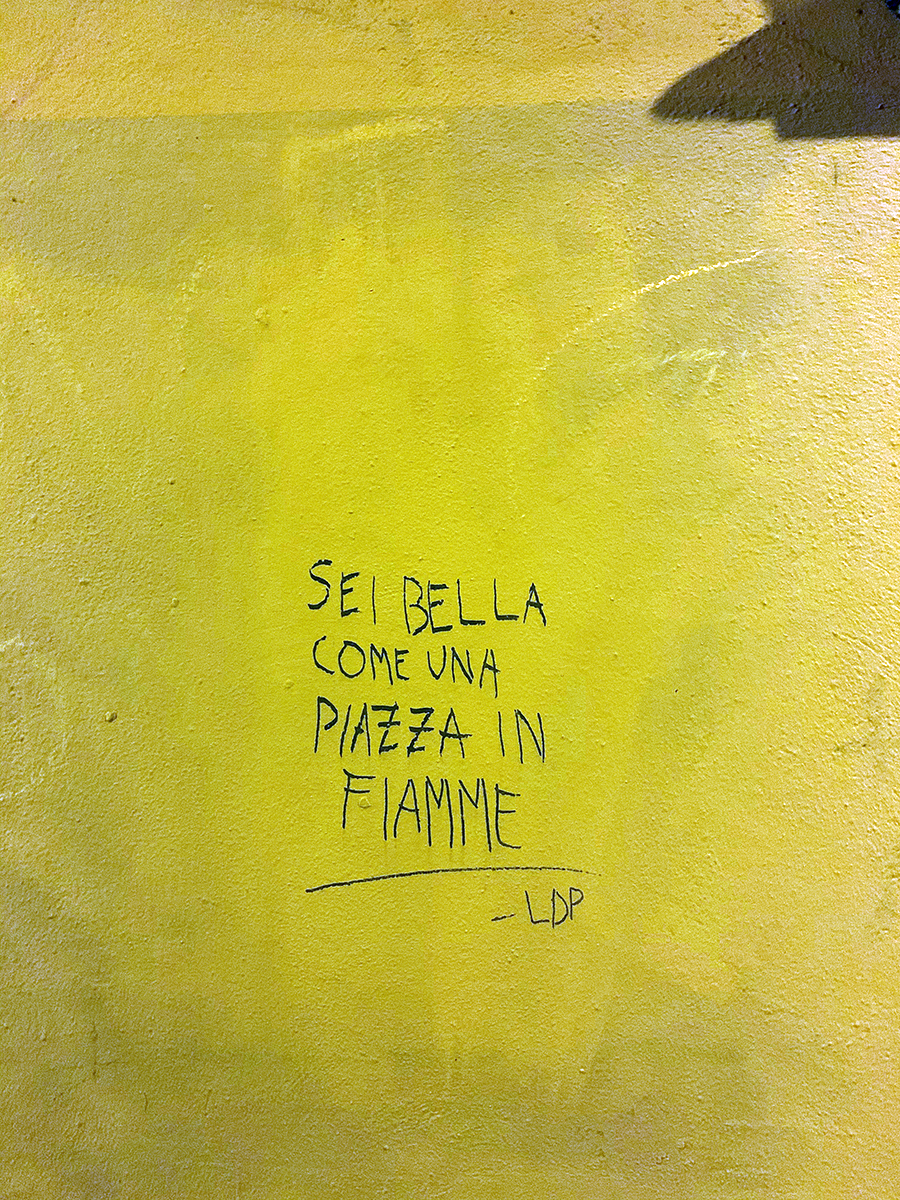 SEI BELLA
COME UNA
PIAZZA IN
FIAMME
- LDP